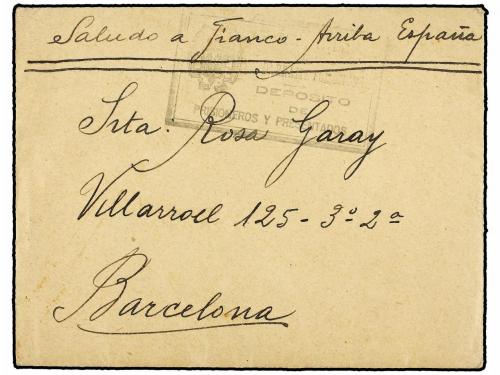 Saludo a Franco - Arriba España
DEPOSITO
DE
PRISIONEROS Y PRESENTADOS
Srta. Rosa Garay
Villarroel 125 - 3º 2ª
Barcelona